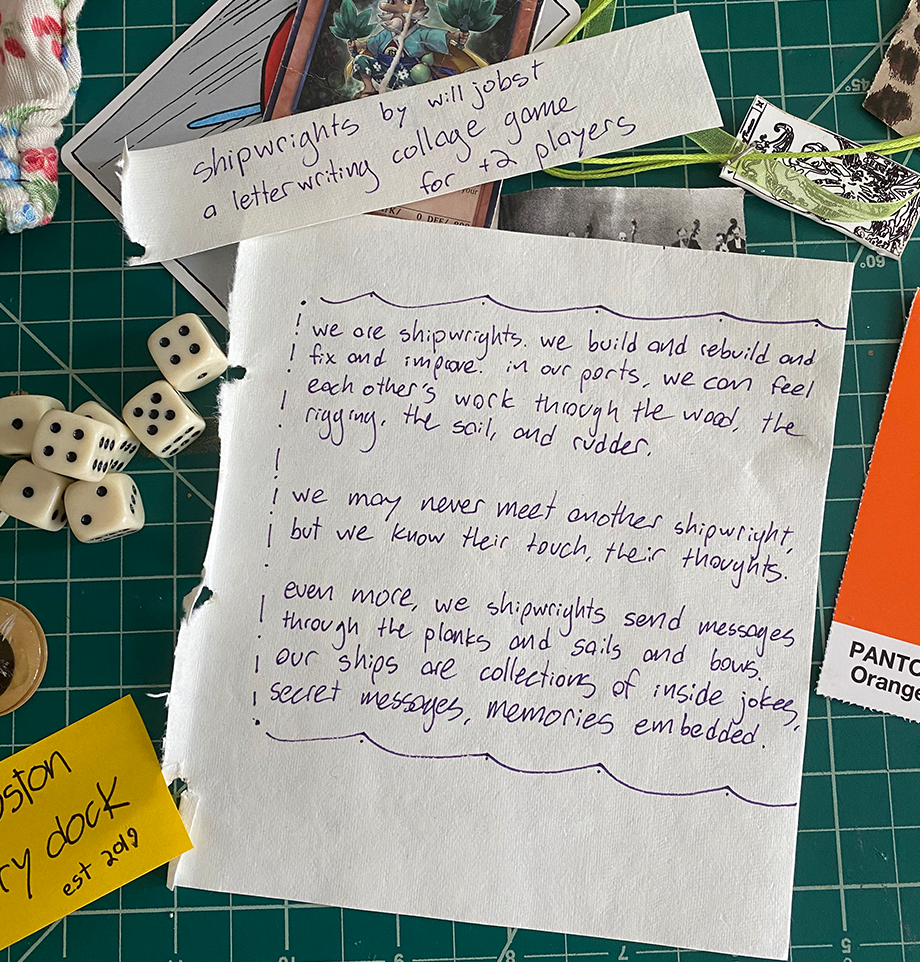 shipwrights by will jobst
a letterwriting collage game
for +2 players
we are shipwrights. we build and rebuild and
fix and improve. in our ports, we can feel
each other's work through the wood, the
rigging, the sail, and rudder.
we may never meet another shipwright,
but we know their touch, their thoughts.
even more, we shipwrights send messages
through the planks and sails and bows.
our ships are collections of inside jokes,
secret messages, memories embedded.
PANTO
Orange
ston
ry dock
est 2019
45°
60°
8
7
6
5